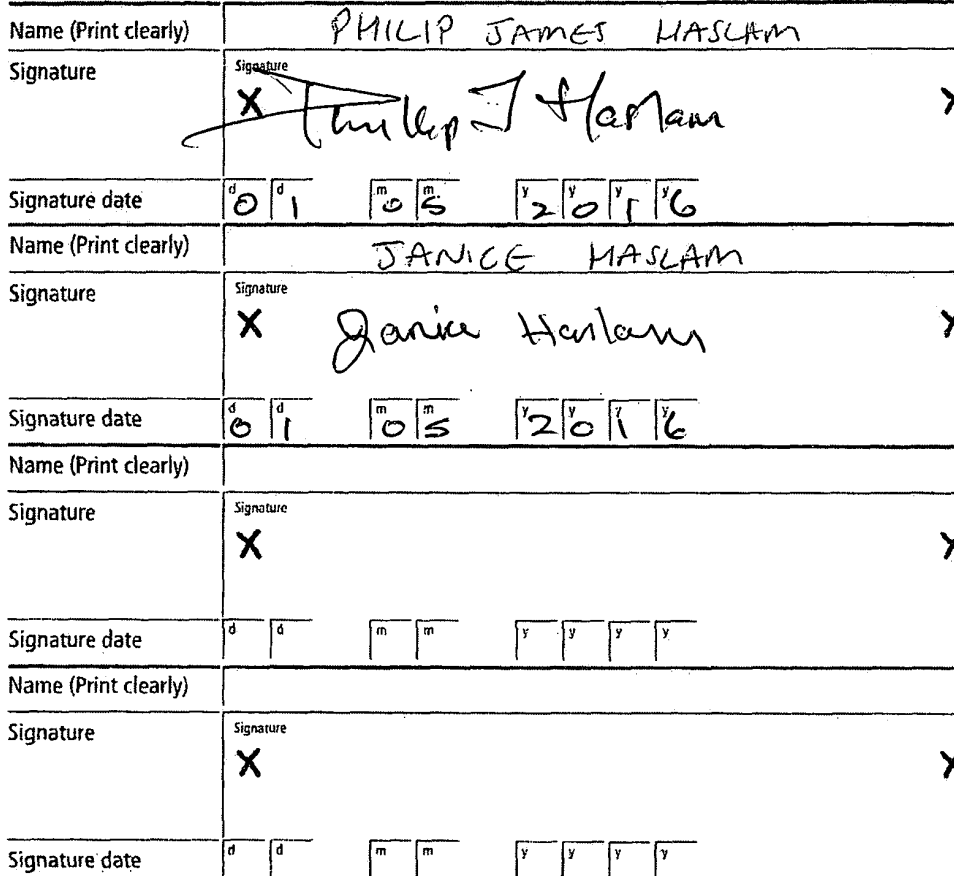 Name (Print clearly) PHILIP JAMES HASLAM
Signature Signature
X Phillip J Haslam X
Signature date d 0 d 1 m 0 m 5 y 2 y 0 y 1 y 6
Name (Print clearly) JANICE HASLAM
Signature Signature
X Janice Haslam X
Signature date d 0 d 1 m 0 m 5 y 2 y 0 y 1 y 6
Name (Print clearly)
Signature Signature
X X
Signature date d d m m y y y y
Name (Print clearly)
Signature Signature
X X
Signature date d d m m y y y y